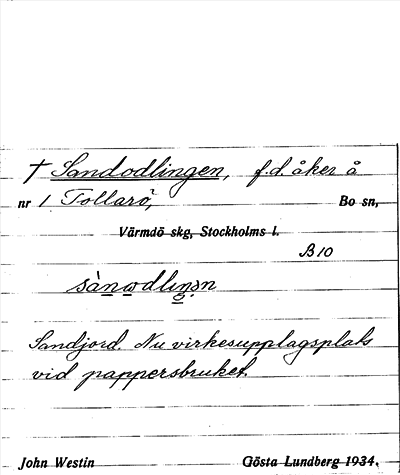 † Sandodlingen, f.d. åker å
nr 1 Tollarö, Bo sn,
Värmdö skg, Stockholms l.
B10
sànωdliŋən
Sandjord. Nu virkesupplagsplats
vid pappersbruket.
John Westin Gösta Lundberg 1934.